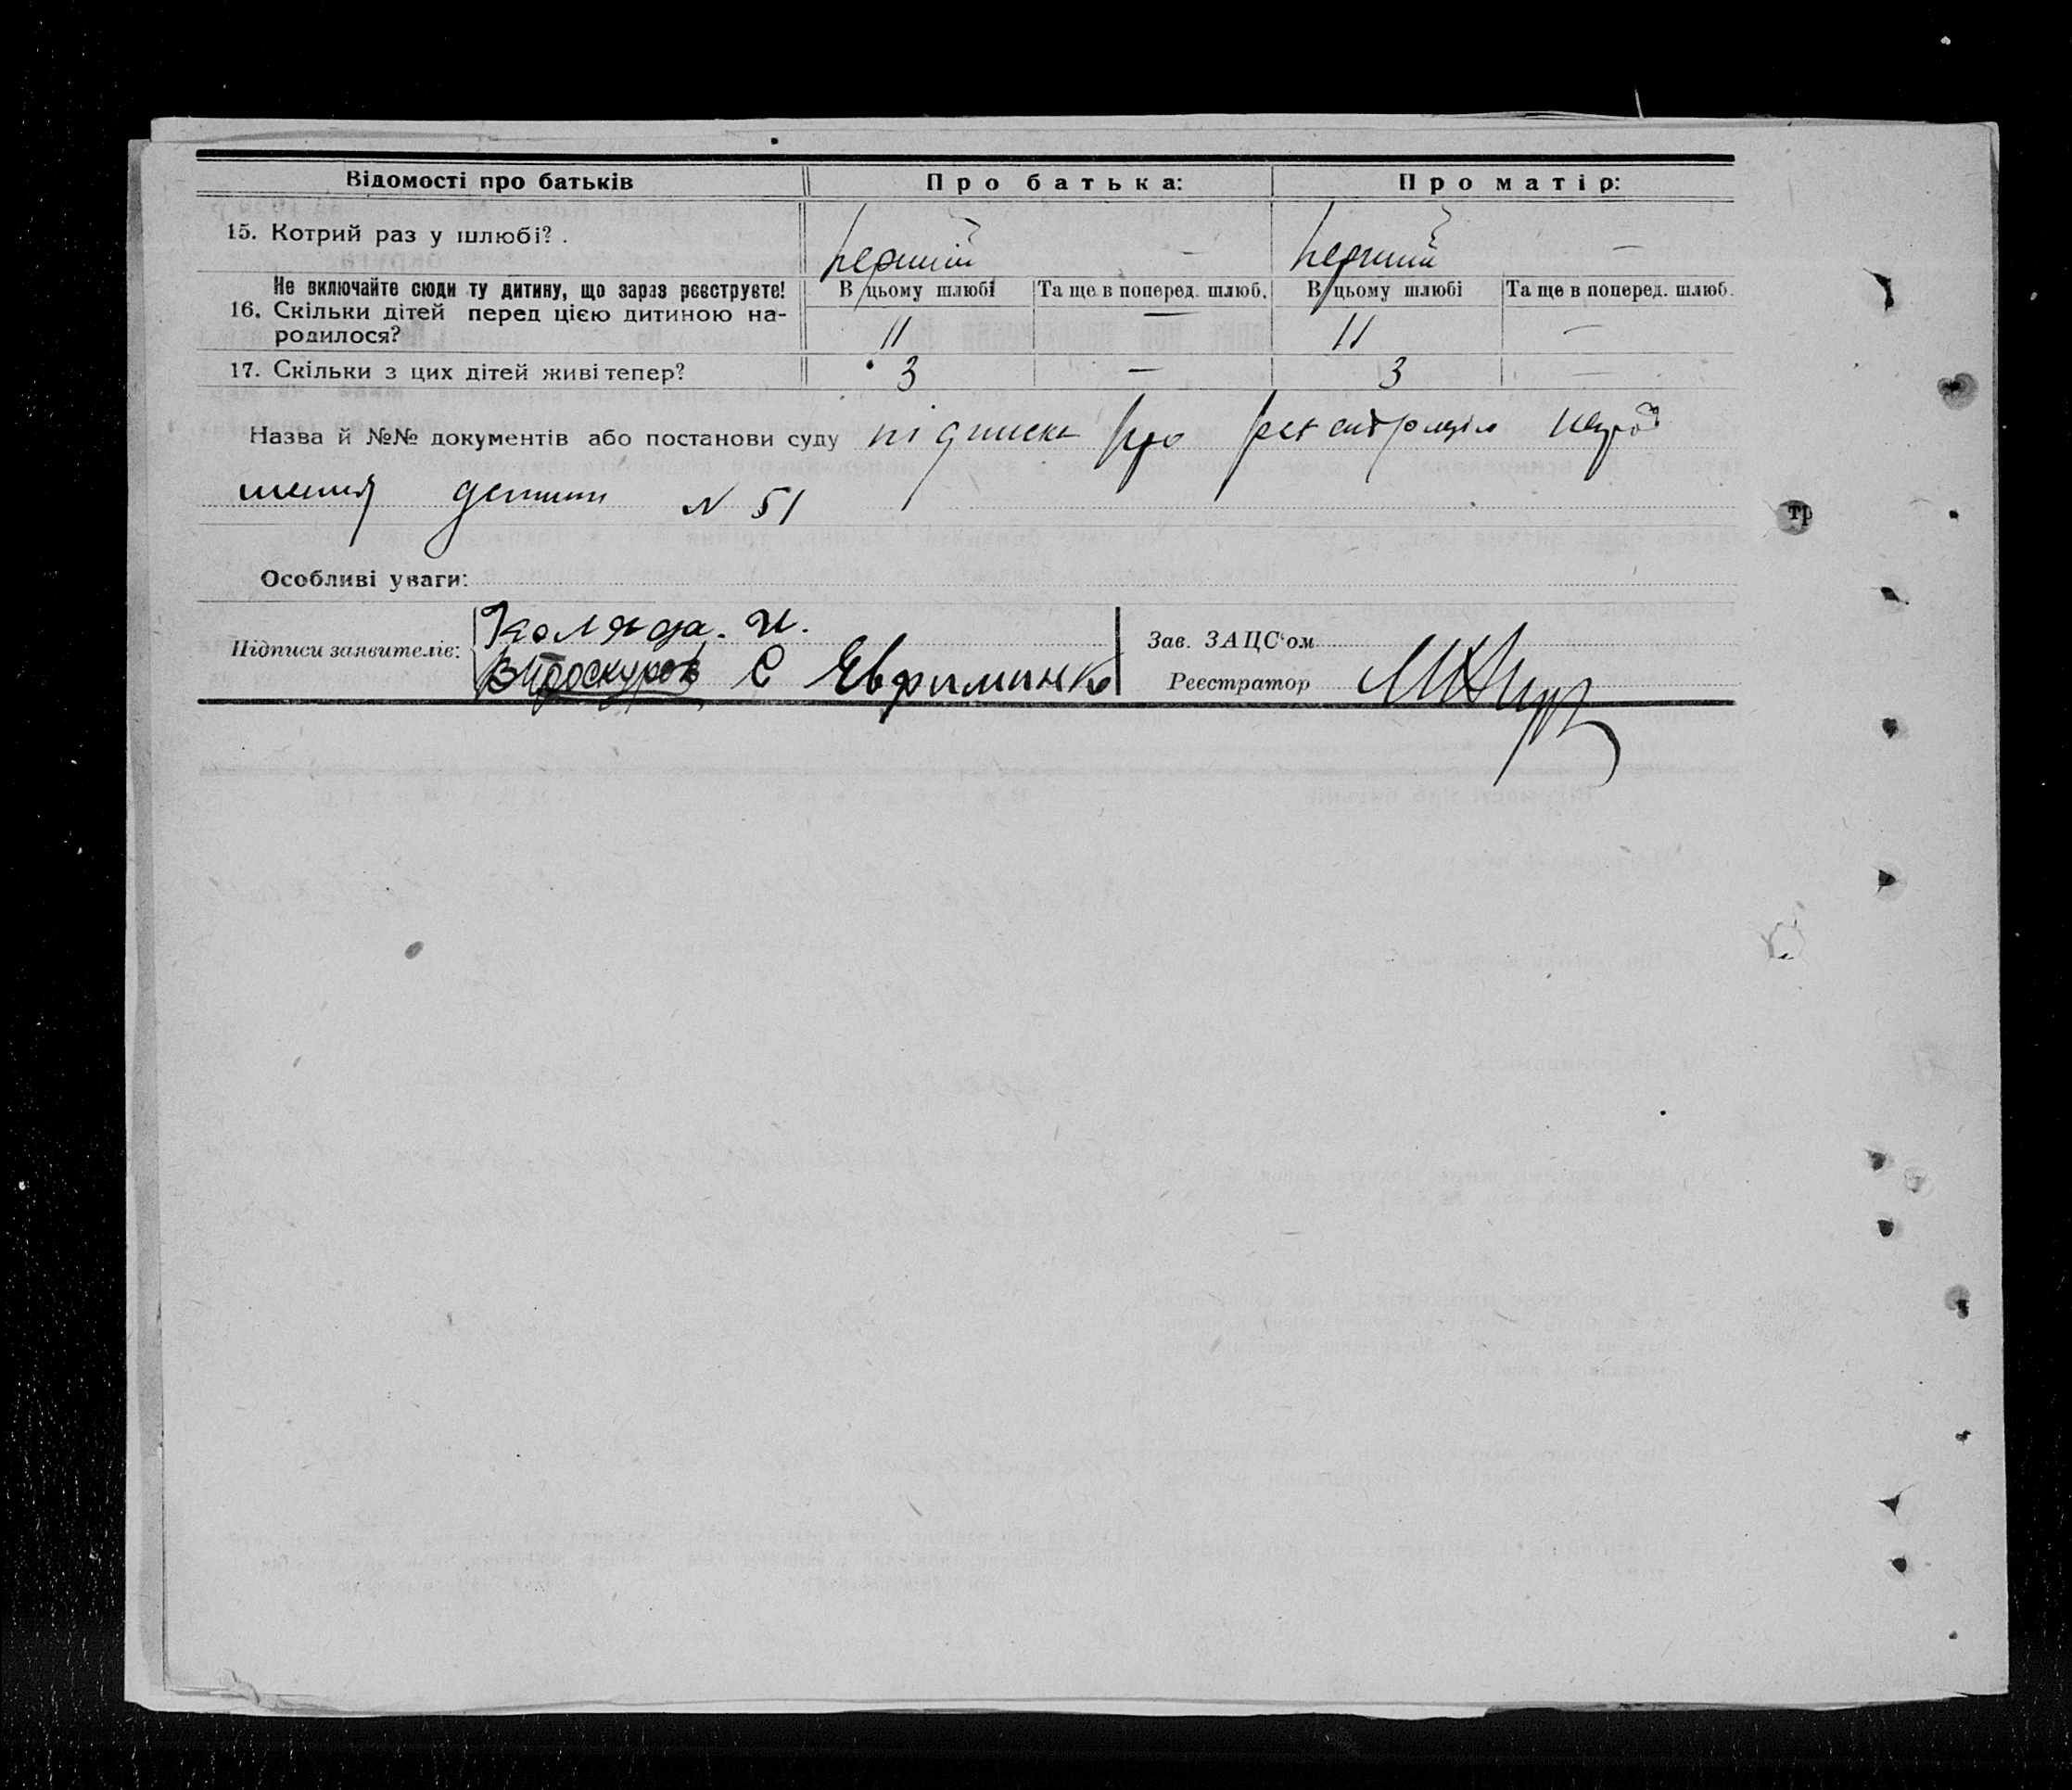 Відомості про батьків Про батька: Про матір:
15. Котрий раз у шлюбі? . перший — перший —
Не включайте сюди ту дитину, що зараз реєструєте! В цьому шлюбі Та ще в поперед. шлюб. В цьому шлюбі Та ще в поперед. шлюб.
16. Скільки дітей перед цією дитиною на-
родилося? 11 — 11 —
17. Скільки з цих дітей живі тепер? 3 — 3 —
Назва й №№ документів або постанови суду підписка про
N 51
Особливі уваги:
Підписи заявителів: Коляда. И.
В Проскуров С Евфименко
Зав. ЗАЦС'ом
Реєстратор
тр